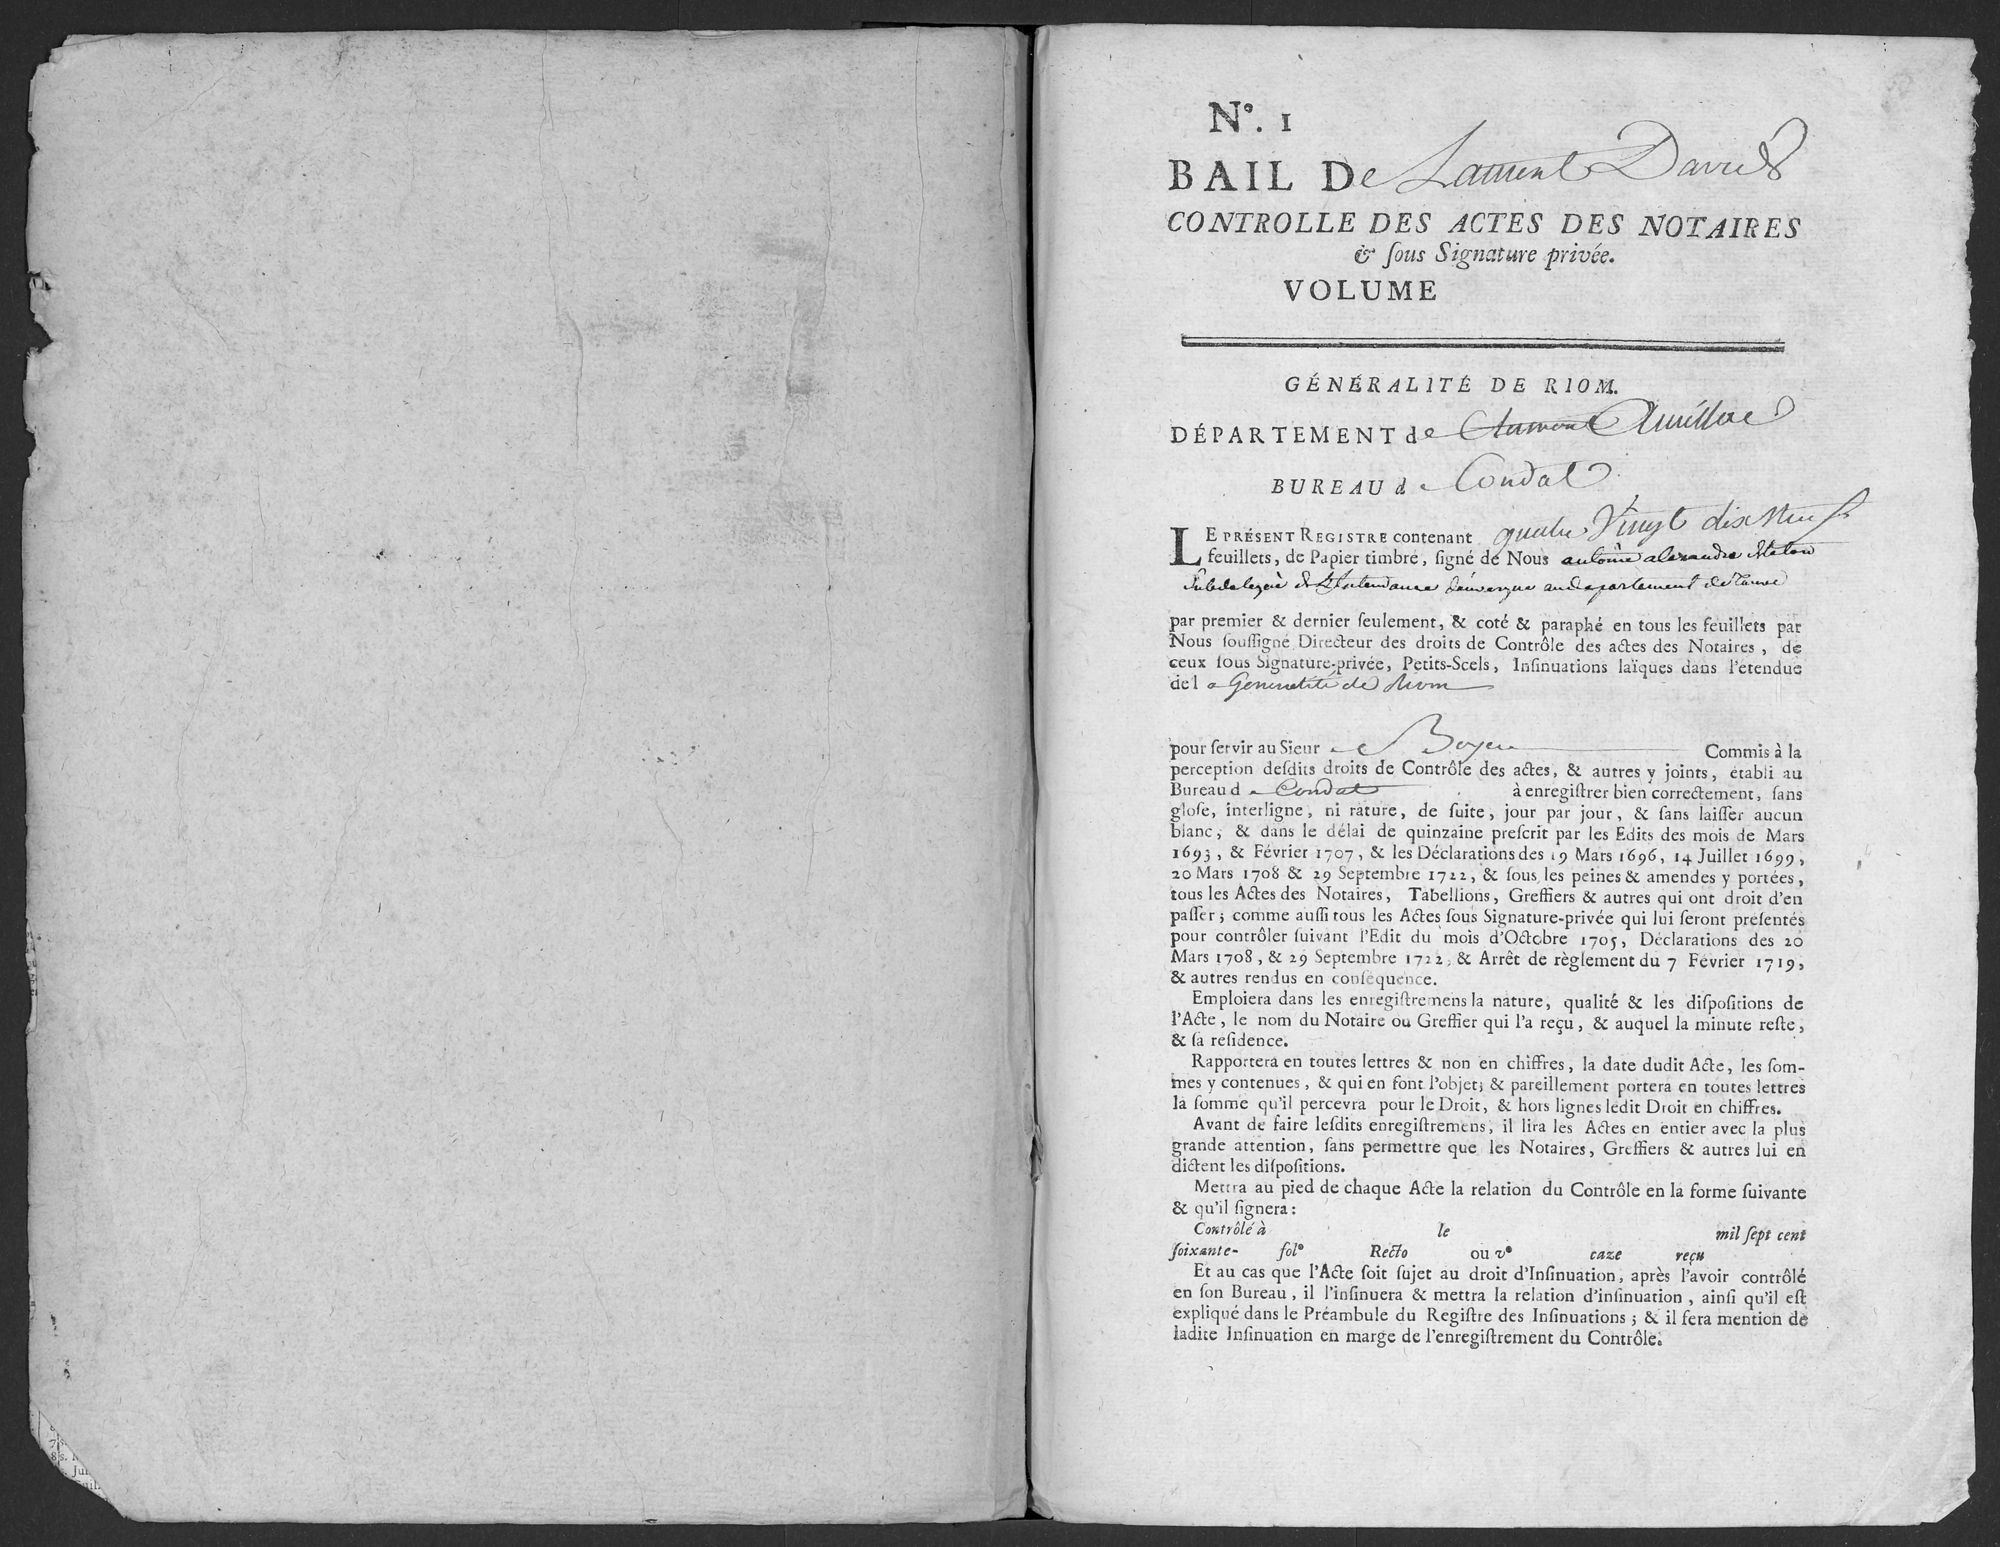 Nº. 1
BAIL De Laurent David
CONTROLLE DES ACTES DES NOTAIRES
& ſous Signature privée.
VOLUME
GÉNÉRALITÉ DE RIOM.
DÉPARTEMENT de Clermont Aurillac
BUREAU de Condat
LE PRÉSENT REGISTRE contenant quatre Vingt dix Neuf
feuillets, de Papier timbré, ſigné de Nous antoine alexandre
Subdelegué de L'Intendance d'auvergne au departement de
par premier & dernier ſeulement, & coté & paraphé en tous les feuillets par
Nous ſouſſigné Directeur des droits de Contrôle des actes des Notaires, de
ceux ſous Signature-privée, Petits-Scels, Inſinuations laïques dans l'étendue
de la Generalité de Riom
pour ſervir au Sieur Boyer Commis à la
perception deſdits droits de Contrôle des actes, & autres y joints, établi au
Bureau de Condat à enregiſtrer bien correctement, ſans
gloſe, interligne, ni rature, de ſuite, jour par jour, & ſans laiſſer aucun
blanc, & dans le délai de quinzaine preſcrit par les Edits des mois de Mars
1693, & Février 1707, & les Déclarations des 19 Mars 1696, 14 Juillet 1699,
20 Mars 1708 & 29 Septembre 1722, & ſous les peines & amendes y portées,
tous les Actes des Notaires, Tabellions, Greffiers & autres qui ont droit d'en
paſſer; comme auſſi tous les Actes ſous Signature-privée qui lui ſeront préſentés
pour contrôler ſuivant l'Edit du mois d'Octobre 1705, Déclarations des 20
Mars 1708, & 29 Septembre 1722, & Arrêt de règlement du 7 Février 1719,
& autres rendus en conſéquence.
Emploiera dans les enregiſtremens la nature, qualité & les diſpoſitions de
l'Acte, le nom du Notaire ou Greffier qui l'a reçu, & auquel la minute reſte,
& ſa reſidence.
Rapportera en toutes lettres & non en chiffres, la date dudit Acte, les ſom-
mes y contenues, & qui en font l'objet; & pareillement portera en toutes lettres
la ſomme qu'il percevra pour le Droit, & hors lignes ledit Droit en chiffres.
Avant de faire leſdits enregiſtremens, il lira les Actes en entier avec la plus
grande attention, ſans permettre que les Notaires, Greffiers & autres lui en
dictent les diſpoſitions.
Mettra au pied de chaque Acte la relation du Contrôle en la forme ſuivante
& qu'il ſignera:
Contrôlé à le mil ſept cent
ſoixante- folº Recto ou vº caze reçu
Et au cas que l'Acte ſoit ſujet au droit d'Inſinuation, après l'avoir contrôlé
en ſon Bureau, il l'inſinuera & mettra la relation d'inſinuation, ainſi qu'il eſt
expliqué dans le Préambule du Regiſtre des Inſinuations; & il fera mention de
ladite Inſinuation en marge de l'enregiſtrement du Contrôle.